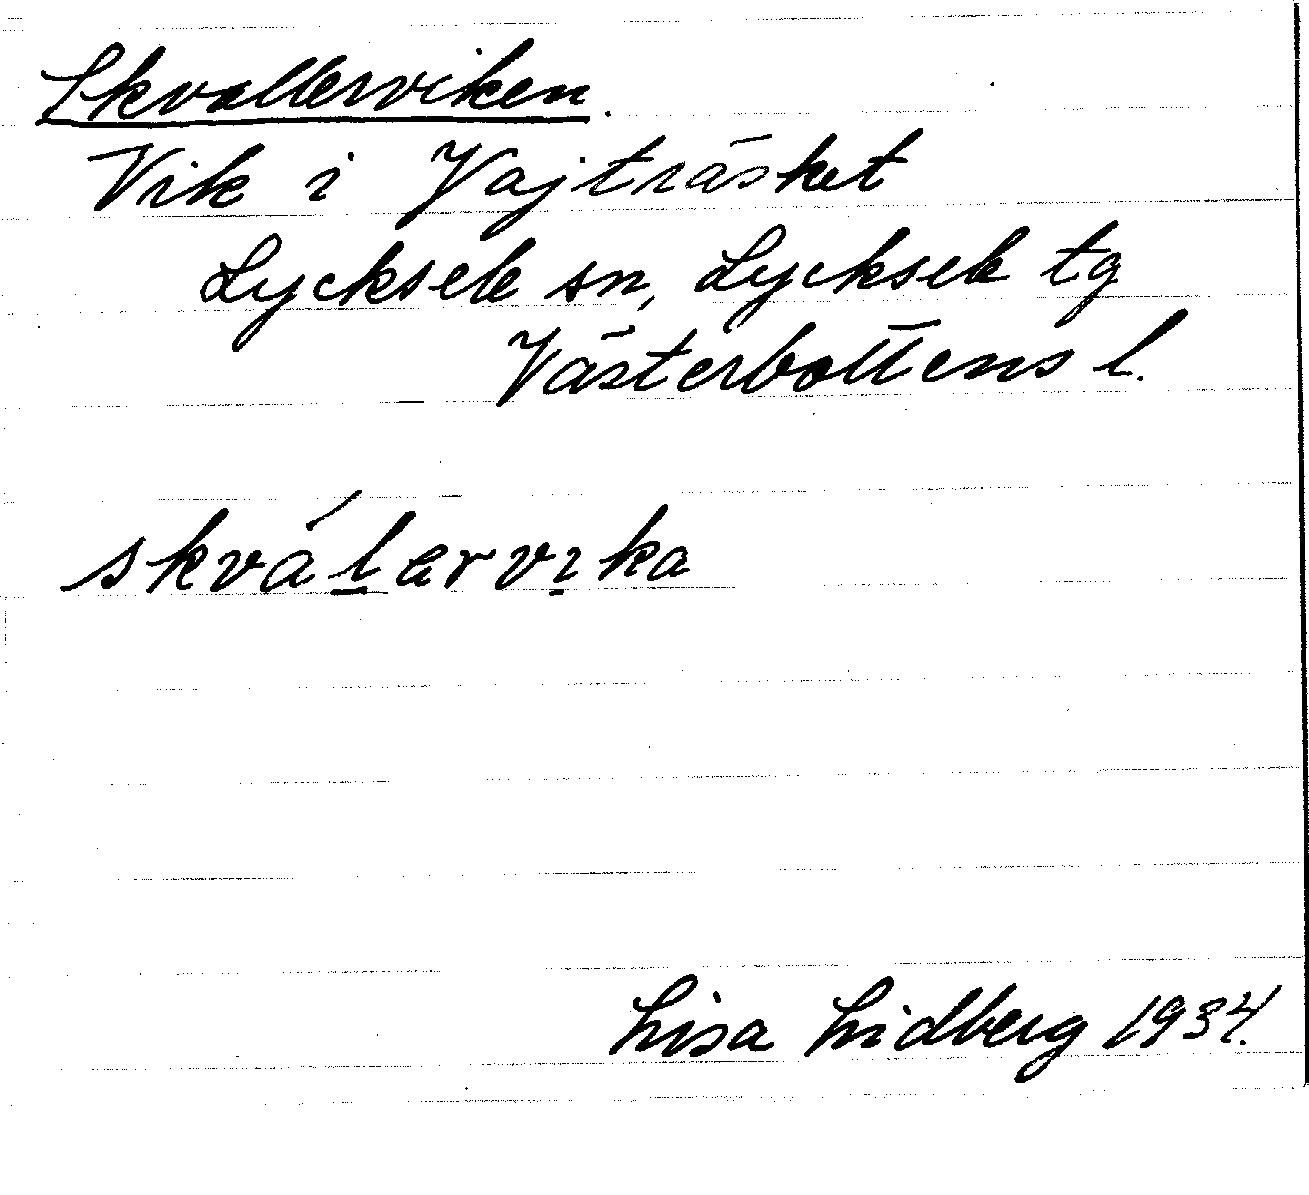 Skvallerviken.
Vik i Vajträsket
Lycksele sn, Lycksele tg
Västerbottens l.
skvál̲arvı̲ka
Lisa Lidberg 1934.